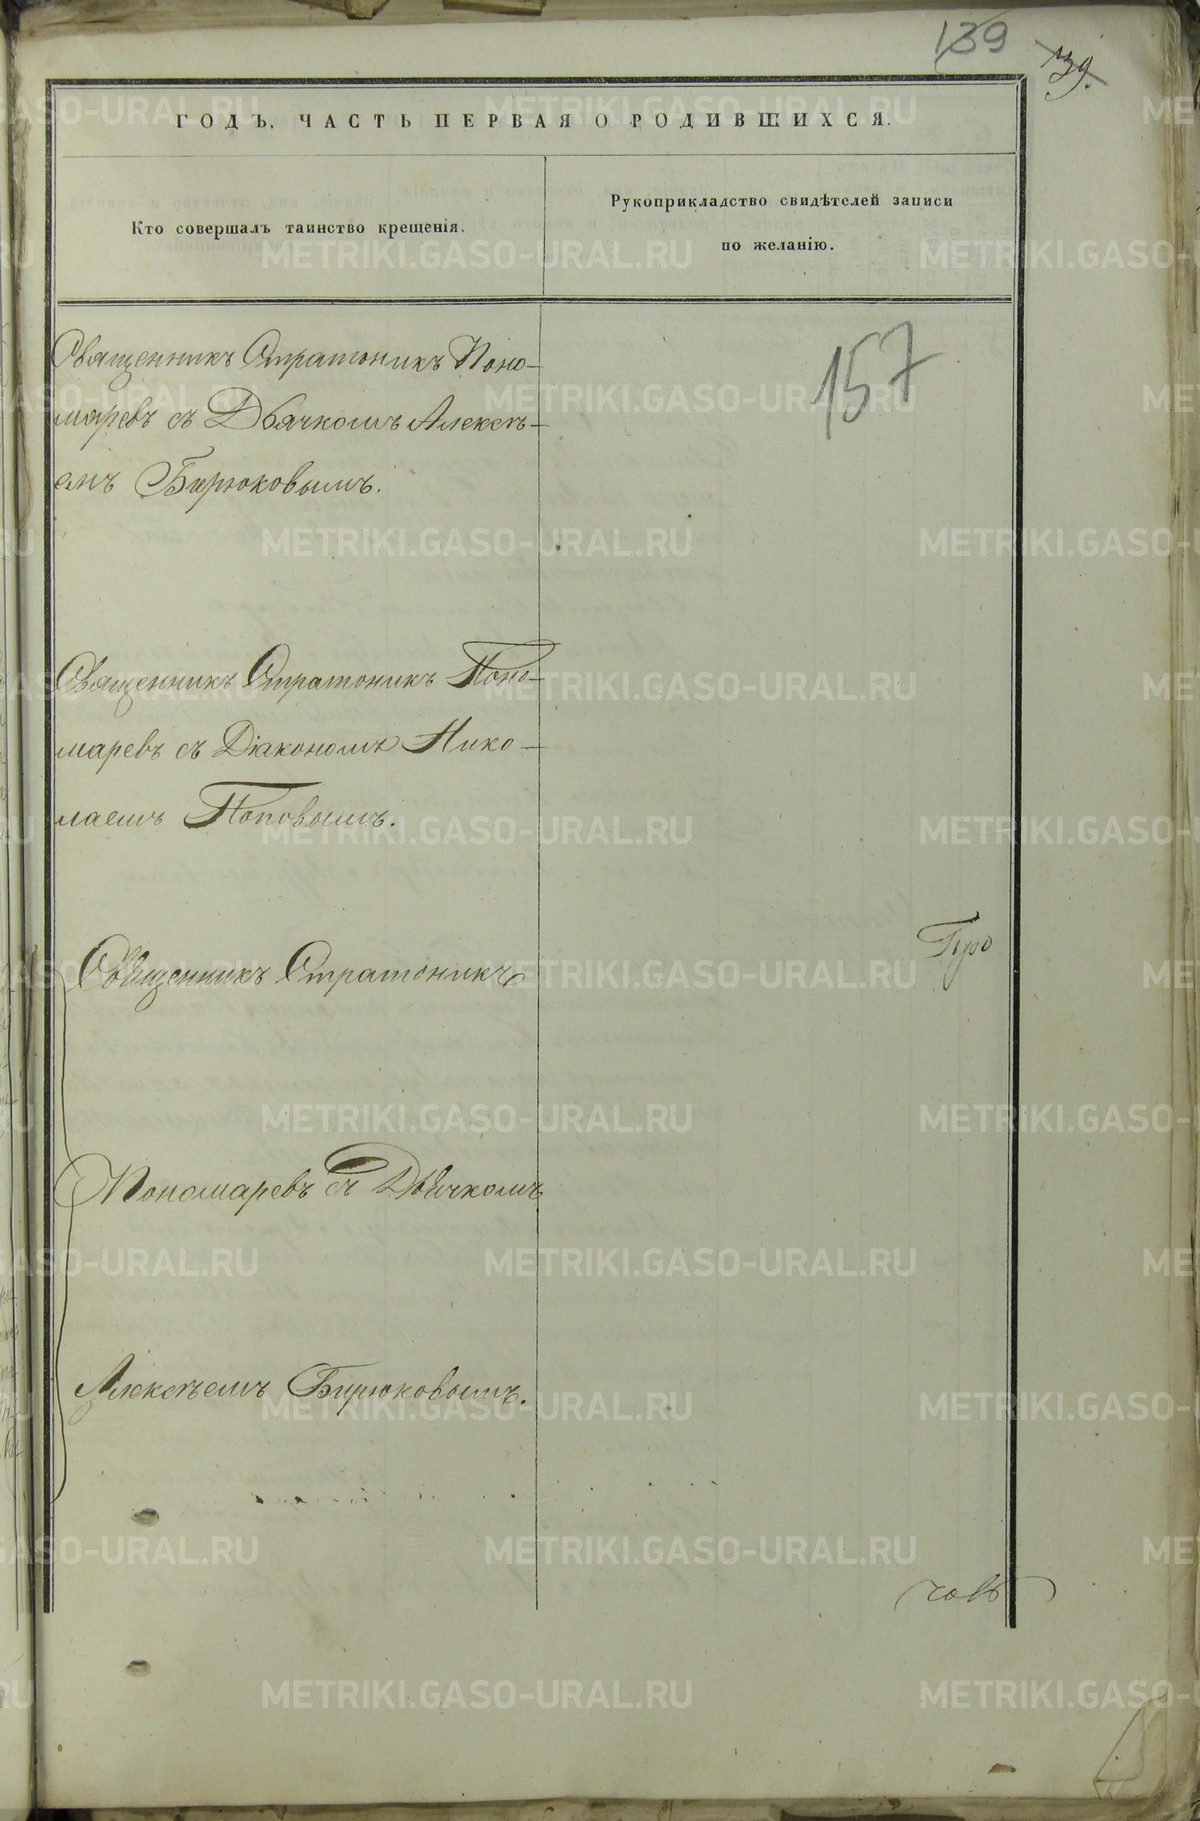 139
139.
ГОДЪ, ЧАСТЬ ПЕРВАЯ О РОДИВШИХСЯ.
Кто совершалъ таинство крещенія.
Рукоприкладство свидѣтелей записи
по желанію.
157
Священникъ Стратоникъ Поно-
маревъ съ Дьячкомъ Алексѣ-
емъ Бирюковымъ.
Священникъ Стратоникъ Поно-
маревъ съ Діакономъ Нико-
лаемъ Поповымъ.
Священникъ Стратоникъ
Пономаревъ съ Дьячкомъ
Алексѣемъ Бирюковымъ.
METRIKI.GASO-URAL.RU